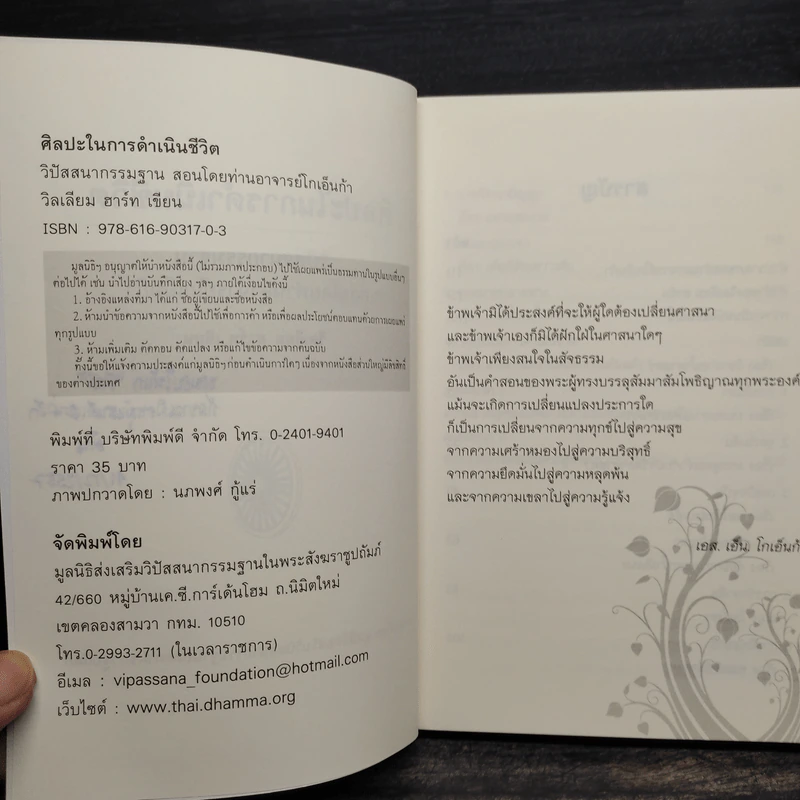 ศิลปะในการดำเนินชีวิต
วิปัสสนากรรมฐาน สอนโดยท่านอาจารย์โกเอ็นก้า
วิลเลียม ฮาร์ท เขียน
ISBN : 978-616-90317-0-3
มูลนิธิฯ อนุญาตให้นำหนังสือนี้ (ไม่รวมภาพประกอบ) ไปใช้เผยแพร่เป็นธรรมทานในรูปแบบอื่นๆ
ต่อไปได้ เช่น นำไปอ่านบันทึกเสียง ฯลฯ ภายใต้เงื่อนไขดังนี้
1. อ้างอิงแหล่งที่มา ได้แก่ ชื่อผู้เขียนและชื่อหนังสือ
2. ห้ามนำข้อความจากหนังสือนี้ไปใช้เพื่อการค้า หรือเพื่อผลประโยชน์ตอบแทนด้วยการเผยแพร่
ทุกรูปแบบ
3. ห้ามเพิ่มเติม ตัดทอน ดัดแปลง หรือแก้ไขข้อความจากต้นฉบับ
ทั้งนี้ขอให้แจ้งความประสงค์แก่มูลนิธิฯก่อนดำเนินการใดๆ เนื่องจากหนังสือส่วนใหญ่มีลิขสิทธิ์
ของต่างประเทศ
พิมพ์ที่ บริษัทพิมพ์ดี จำกัด โทร. 0-2401-9401
ราคา 35 บาท
ภาพปกวาดโดย : นภพงศ์ กู้แร่
จัดพิมพ์โดย
มูลนิธิส่งเสริมวิปัสสนากรรมฐานในพระสังฆราชูปถัมภ์
42/660 หมู่บ้านเค.ซี.การ์เด้นโฮม ถ.นิมิตใหม่
เขตคลองสามวา กทม. 10510
โทร.0-2993-2711 (ในเวลาราชการ)
อีเมล : vipassana_foundation@hotmail.com
เว็บไซต์ : www.thai.dhamma.org
ข้าพเจ้ามิได้ประสงค์ที่จะให้ผู้ใดต้องเปลี่ยนศาสนา
และข้าพเจ้าเองก็มิได้ฝักใฝ่ในศาสนาใดๆ
ข้าพเจ้าเพียงสนใจในสัจธรรม
อันเป็นคำสอนของพระผู้ทรงบรรลุสัมมาสัมโพธิญาณทุกพระองค์
แม้นจะเกิดการเปลี่ยนแปลงประการใด
ก็เป็นการเปลี่ยนจากความทุกข์ไปสู่ความสุข
จากความเศร้าหมองไปสู่ความบริสุทธิ์
จากความยึดมั่นไปสู่ความหลุดพ้น
และจากความเขลาไปสู่ความรู้แจ้ง
เอส. เอ็น. โกเอ็นก้า